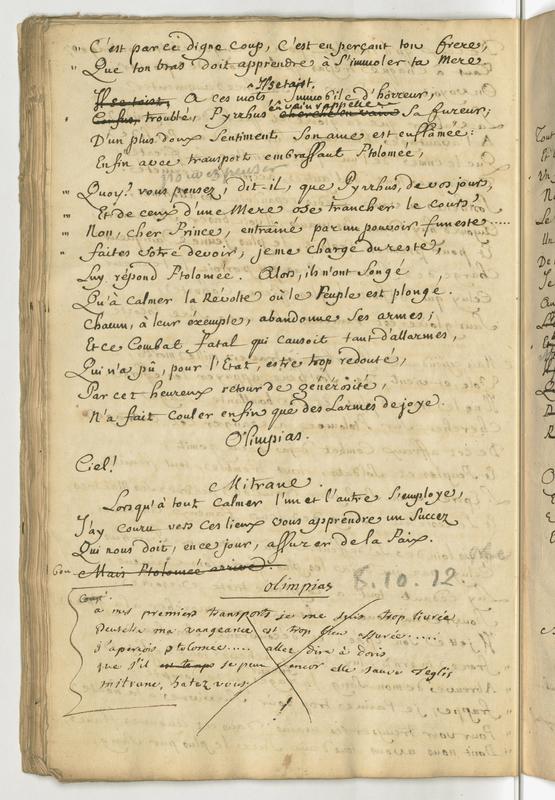 " C'est par ce digne coup, C'est en perçant ton frere,
" Que ton bras doit apprendre à S'immoler ta Mere
Il se taist.
Il se taist, A ces mots Immobile d'horreur,
en vain rappelle
Confus, trouble, Pyrrhus cherche en vain Sa fureur;
D'un plus doux Sentiment Son ame est enflâmée:
Enfin avec transport embrassant Ptolomée,
" Quoy? vous pensez, dit-il, que Pyrrhus, de vos jours,
" Et de ceux d'une Mere ose trancher le cours?
" Non, cher Prince, entrainé par un pouvoir funeste.....
" faites votre devoir, je me charge du reste,
Luy répond Ptolomée. Alors, ils n'ont Songé
Qu'à calmer la Révolte où le Peuple est plongé.
Chacun, à leur éxemple, abandonne Ses armes;
Et ce Combat fatal qui causoit tant d'allarmes,
Qui n'a pû, pour l'Etat, estre trop redouté,
Par cet heureux retour de générosité,
N'a fait couler enfin que des Larmes de joye.
Olimpias.
Ciel!
Mitrane.
Lorsqu'à tout calmer l'un et l'autre S'employe,
J'ay couru vers ces lieux vous apprendre un Succez
Qui nous doit, en ce jour, assurer de la Paix.
bon Mais Ptolomée arrive.
olimpias 8.10.12
a mes premiers transports je me suis trop livrée
Peutestre ma vangeance est trop peu assurée.....
j'aperçois ptolomée..... allez dire à doris
que s'il est temps se peut encor elle sauve
mitrane, hatez vous